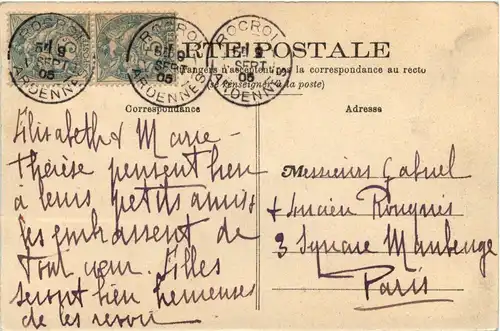 ROCROI
5E 9
SEPT
05
ARDENNES
ROCROI
5E 9
SEPT
05
ARDENNES
ROCROI
SEPT
05
ARDENNES
CARTE POSTALE
étrangers n'acceptent pas la correspondance au recto
(se renseigner à la poste)
Correspondance
Elisabeth & Marie-
Thérèse pensent bien
à leurs petits amis &
les embrassent de
tout cœur. Elles
seront bien heureuses
de les revoir
Adresse
Messieurs Gabriel
+ Lucien Rouquis
3 Square Maubeuge
Paris